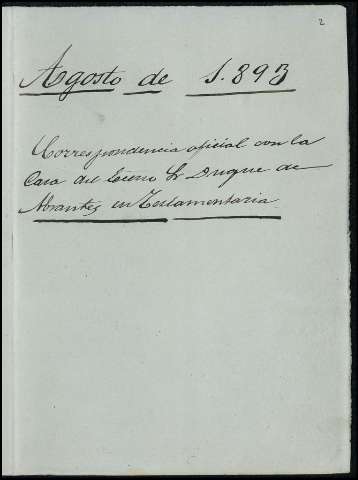 2
Agosto de 1.893
Correspondencia oficial con la
Casa del Excmo Sr Duque de
Abrantes en Testamentaria